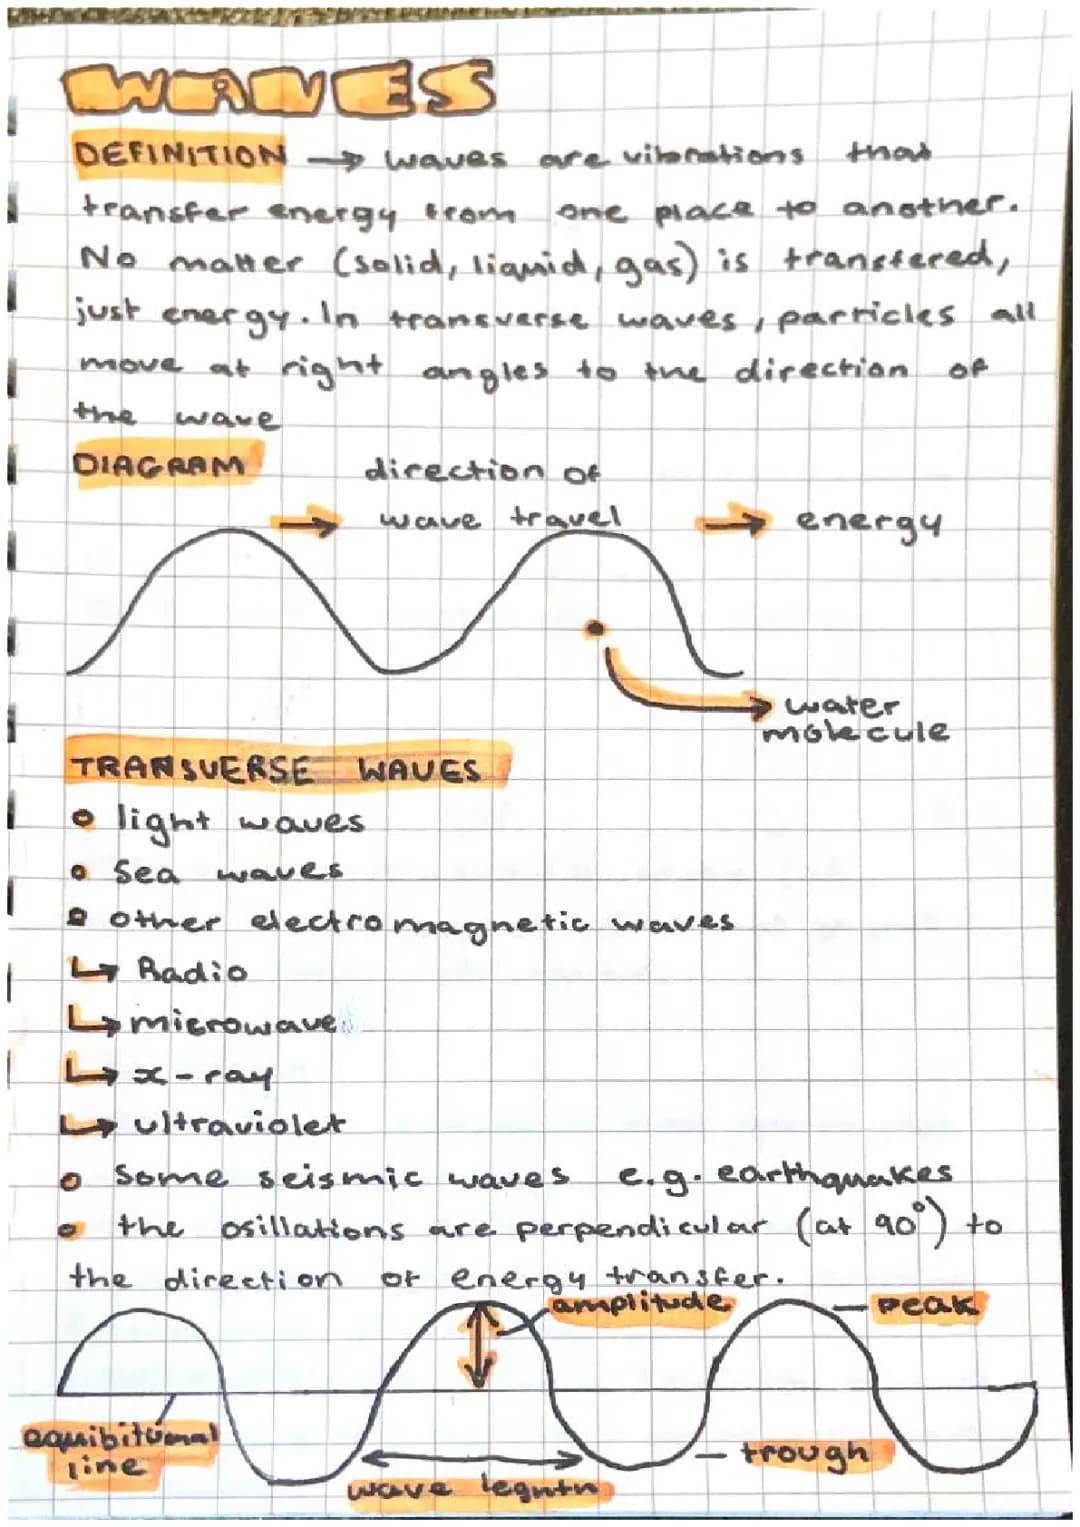 WAVES
DEFINITION → waves are vibrations that
transfer energy from one place to another.
No matter (solid, liquid, gas) is transfered,
just energy. In transverse waves, particles all
move at right angles to the direction of
the wave
DIAGRAM
direction of
wave travel
energy
water
molecule
TRANSVERSE WAVES
light waves
Sea waves
other electromagnetic waves
↳ Radio
↳ microwave
↳ x-ray
↳ ultraviolet
some seismic waves e.g. earthquakes
the osillations are perpendicular (at 90°) to
the direction of energy transfer.
amplitude
peak
equibitumal
line
trough
wave legnth